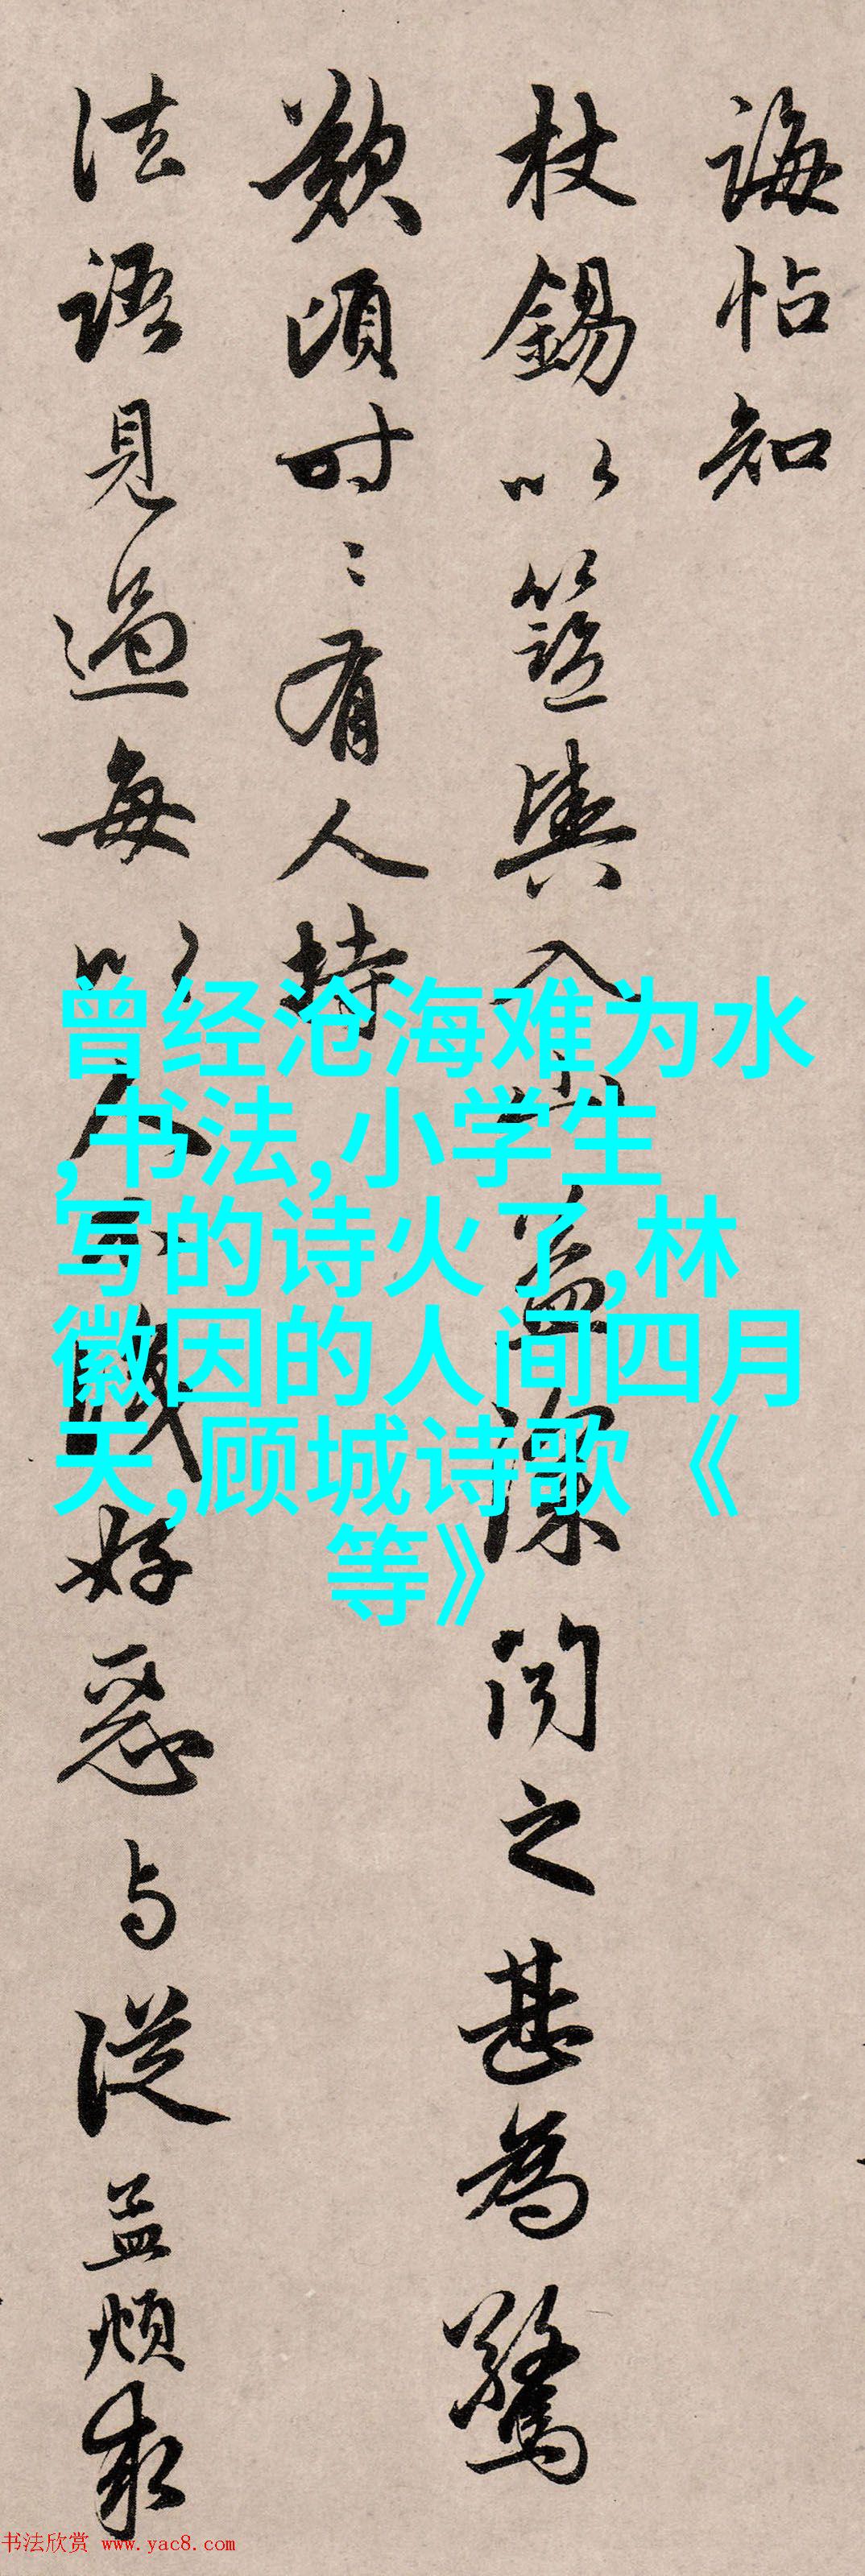 誨帖知
杖錫以籃輿入山益深聞之甚為驚
歎頃時〻有人持
法語見過每以人不賤好惡与從益煩
曾经沧海难为水
,书法,小学生
写的诗火了,林
徽因的人间四月
天,顾城诗歌《
等》
书法欣赏 www.yac8.com